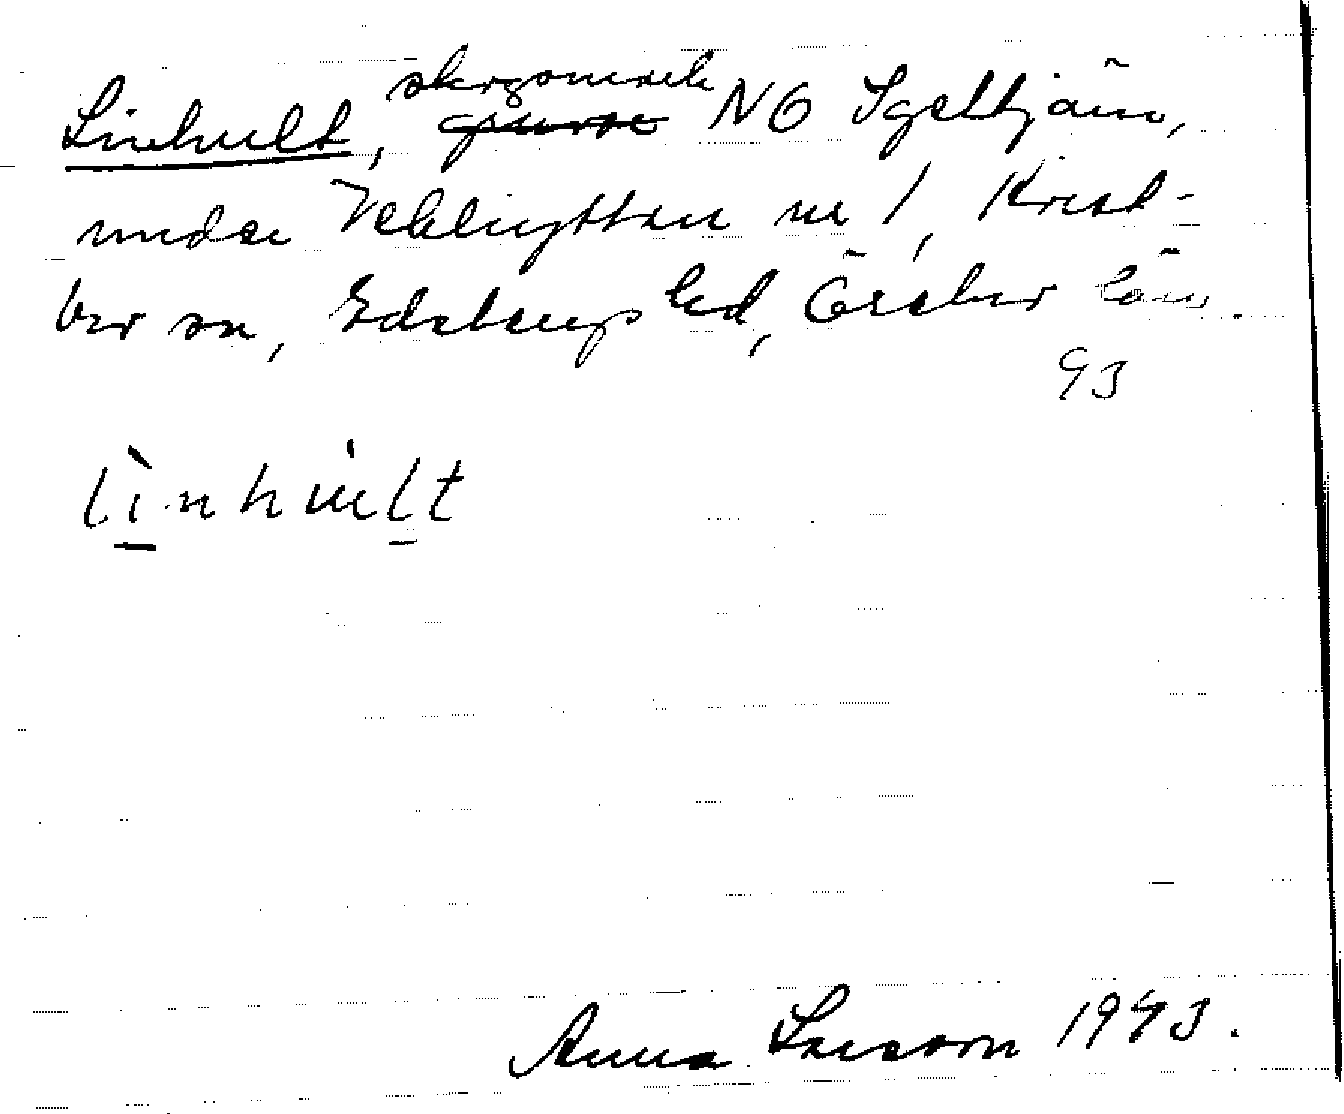 skogsområde
Linhult, NO Igeltjärn,
under Vekhyttan nr 1, Krist-
ber sn, Edsbergs hd, Örebr län.
43
linhult
Anna Larsson 1943.